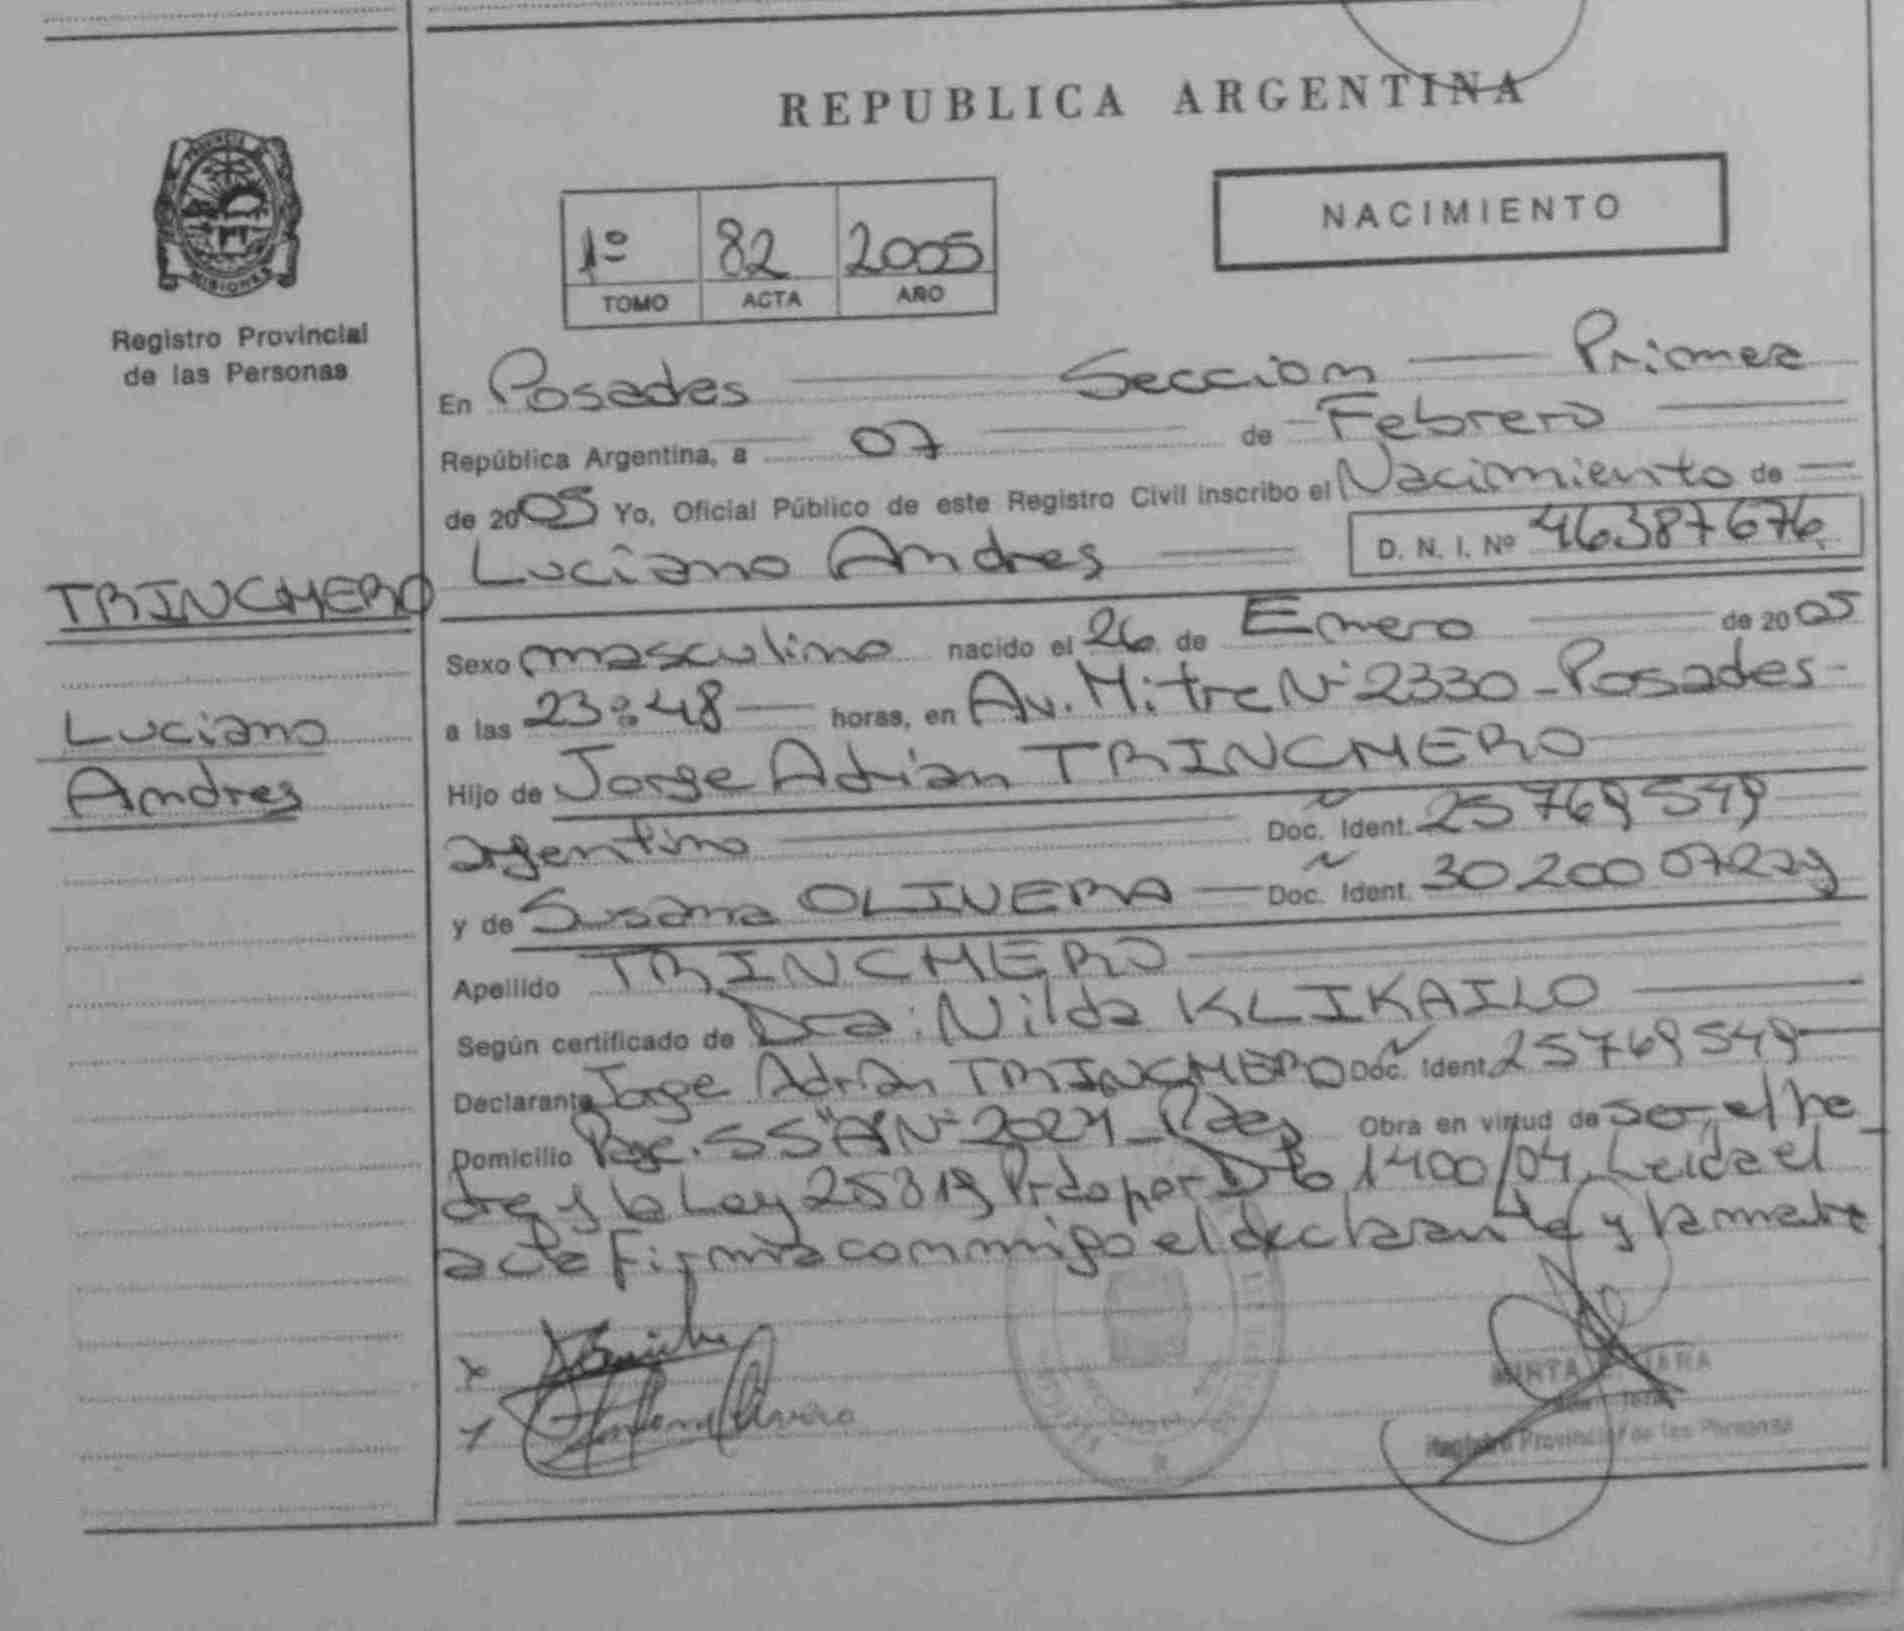 REPUBLICA ARGENTINA
NACIMIENTO
1º 82 2005
TOMO ACTA AÑO
PROVINCIA DE
MISIONES
Registro Provincial
de las Personas
En Posadas Seccion Primera
República Argentina, a 07 de Febrero
de 2005 Yo, Oficial Público de este Registro Civil inscribo el Nacimiento de
Luciano Andres D. N. I. Nº 46387676
TRINCHERO
Luciano
Andres
Sexo masculino nacido el 26 de Enero de 2005
a las 23:48 horas, en Av. Mitre Nº 2330 - Posadas -
Hijo de Jorge Adrian TRINCHERO
argentino Doc. Ident. 25769549
y de Susana OLIVERA Doc. Ident. 30200072
Apellido TRINCHERO
Según certificado de Dra: Nilda KLIKAILO
Declarante Jorge Adrian TRINCHERO Doc. Ident. 25769549
Domicilio Pje. SS "A" Nº Obra en virtud de ser el Pa
dre y la Ley 25819 Prdo por Dto 1400/04. Leida el
acta firma conmigo el declarante y la madre
MIRTA JARA
Registro Provincial de las Personas